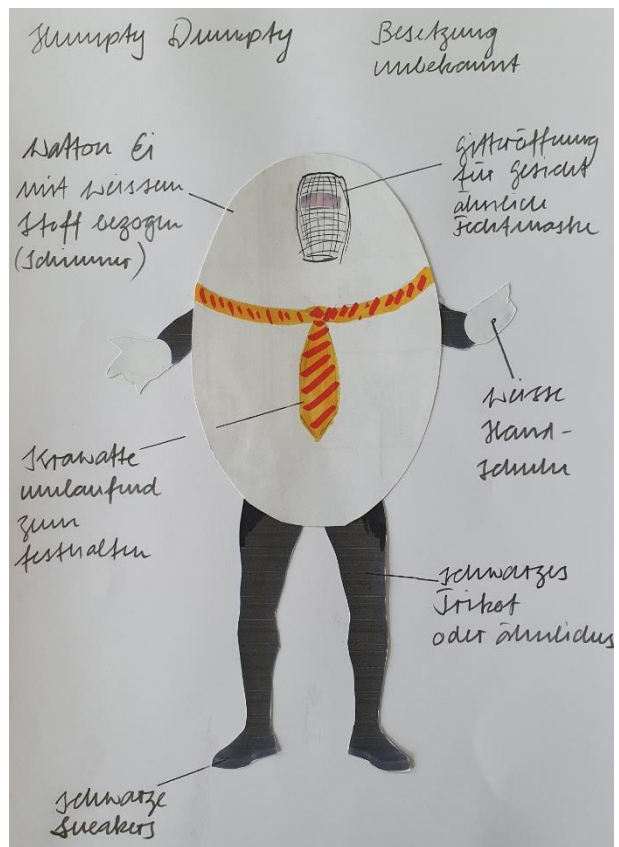 Humpty Dumpty
Besetzung
unbekannt
Watton Ei
mit weissem
Stoff bezogen
(Schimmer)
Gitteröffnung
für Gesicht
ähnlich
Fechtmaske
weisse
Hand-
schuhe
Krawatte
umlaufend
zum
festhalten
schwarzes
Trikot
oder ähnliches
schwarze
Sneakers